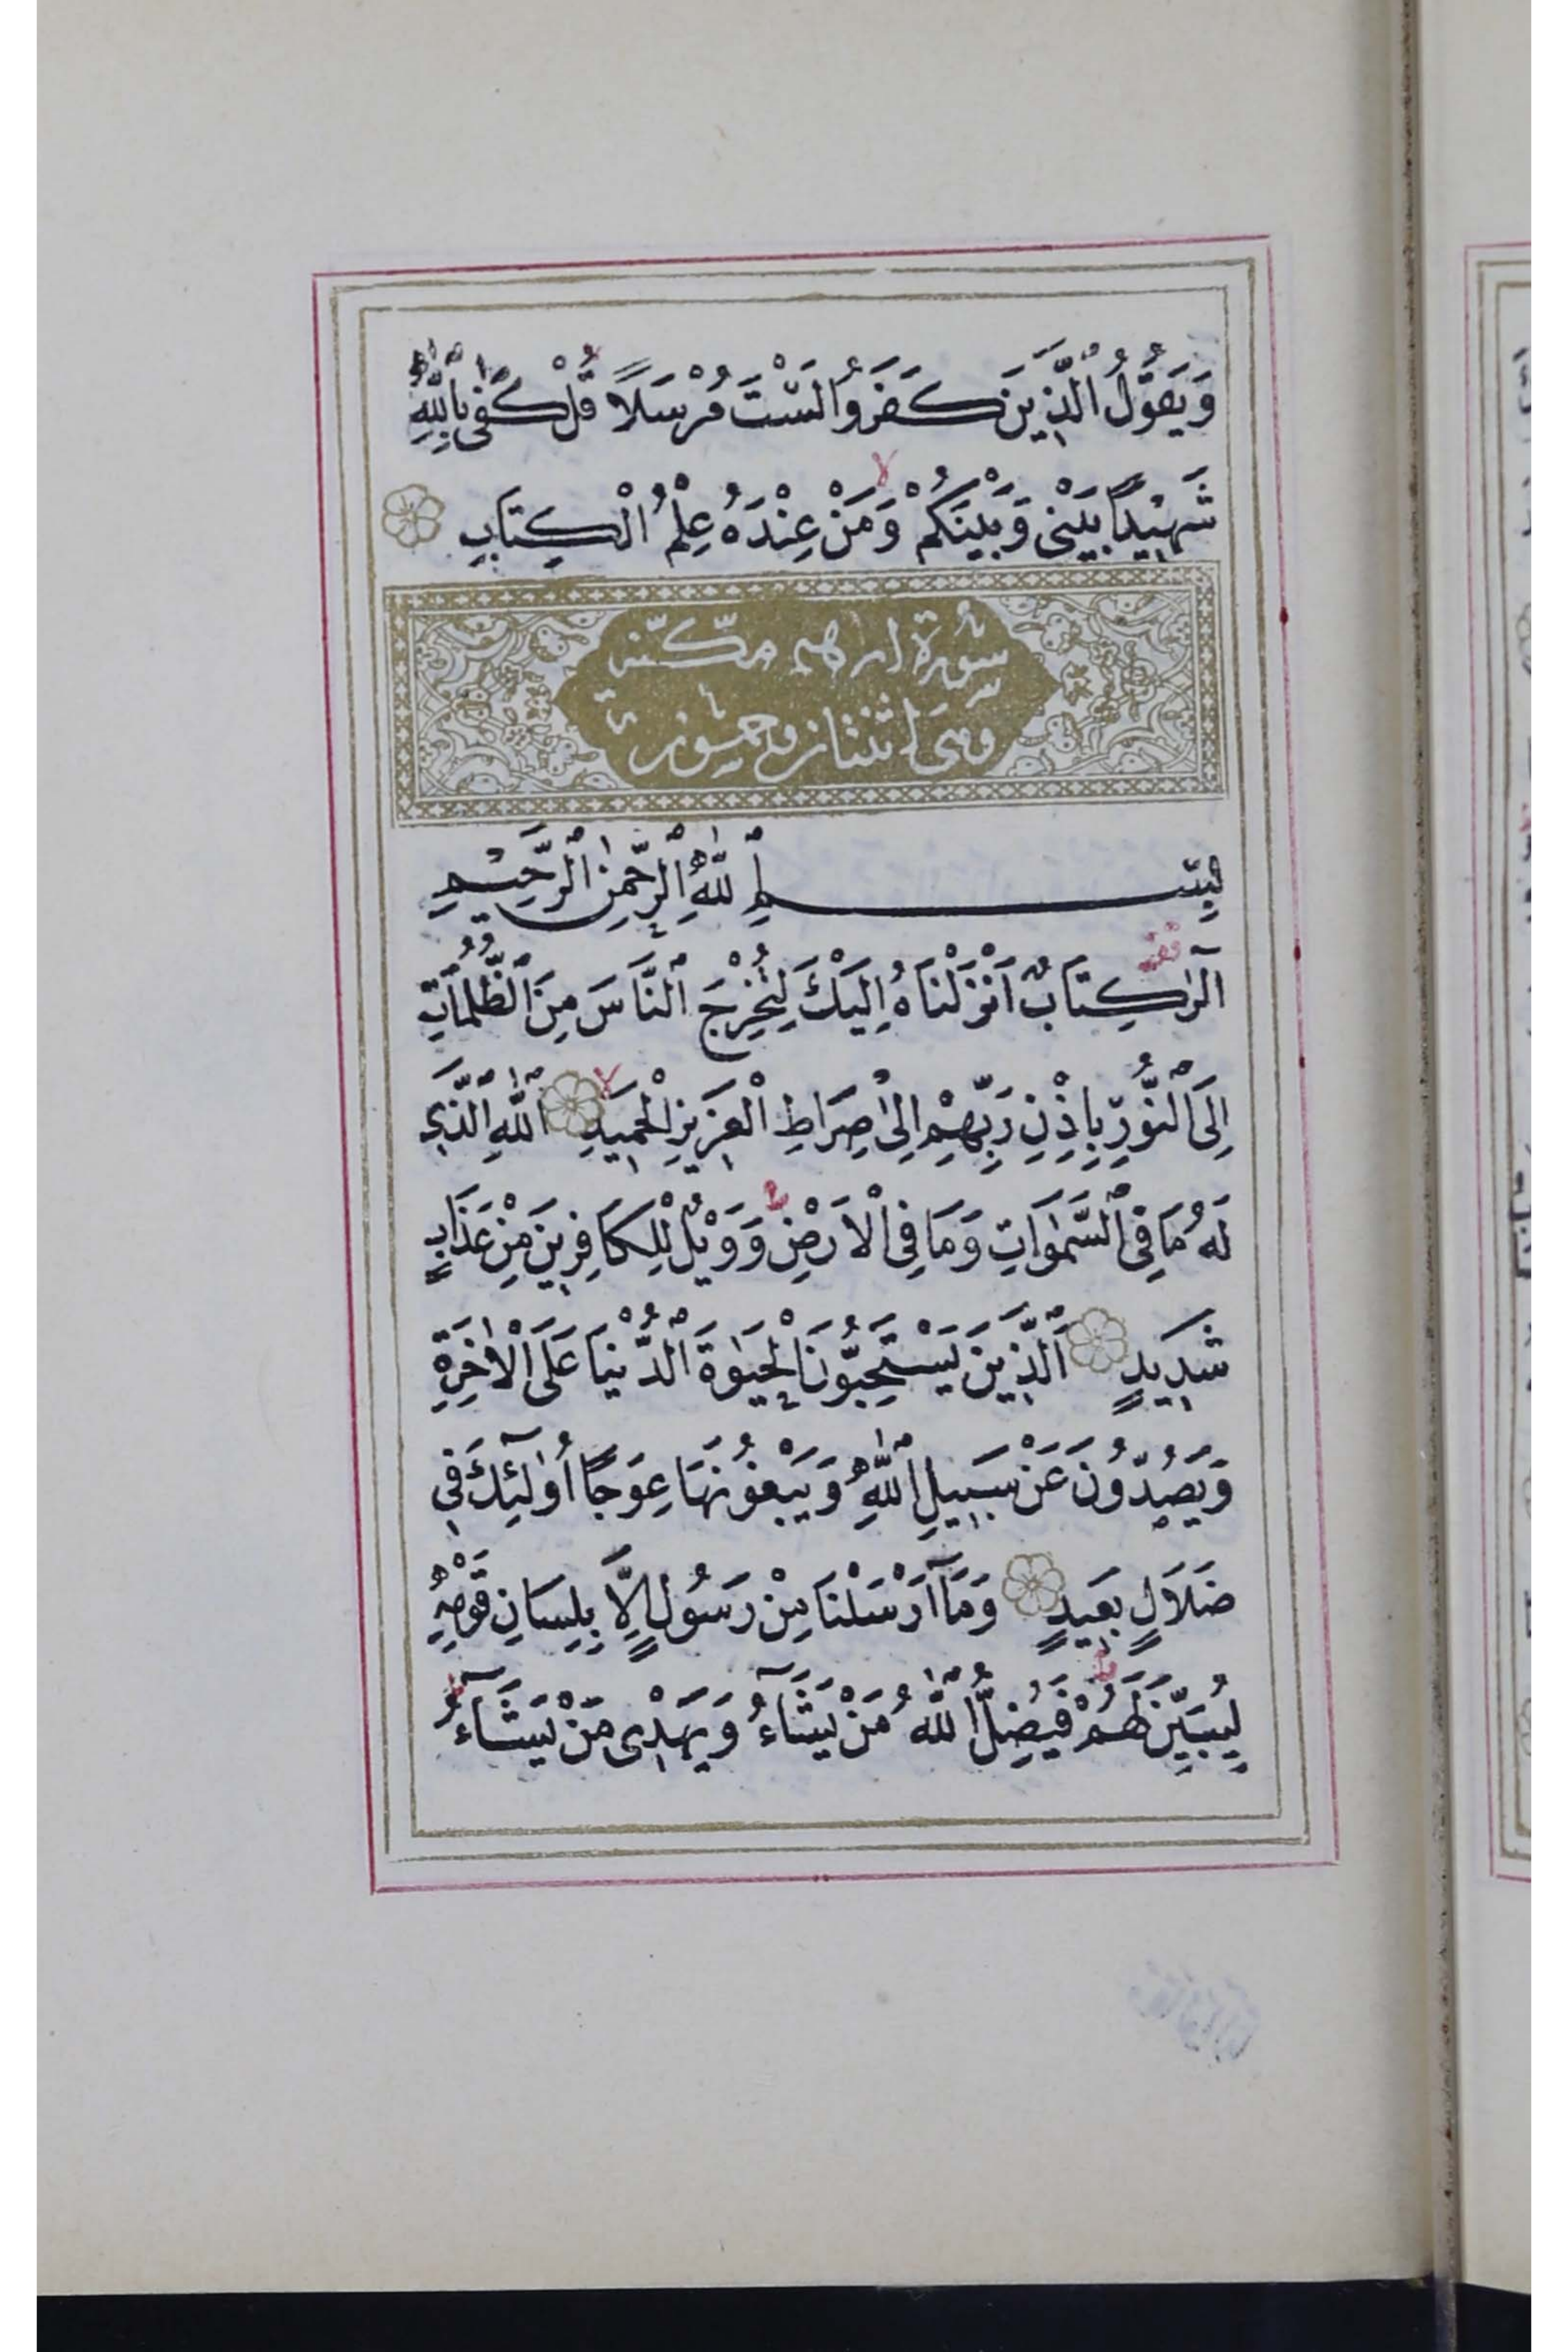 وَيَقُولُ ٱلَّذِينَ كَفَرُوا لَسْتَ مُرْسَلًا قُلْ كَفٰى بِٱللّٰهِ
شَهِيدًا بَيْنِى وَبَيْنَكُمْ وَمَنْ عِنْدَهُ عِلْمُ الْكِتَابِ
سُورَة ابراهيم مكّيّة
وهى اثنتان وخمسون آية
بِسْمِ ٱللّٰهِ ٱلرَّحْمٰنِ ٱلرَّحِيمِ
آلٰر كِتَابٌ اَنْزَلْنَاهُ اِلَيْكَ لِتُخْرِجَ ٱلنَّاسَ مِنَ ٱلظُّلُمَاتِ
اِلَى ٱلنُّورِ بِاِذْنِ رَبِّهِمْ اِلٰى صِرَاطِ الْعَزِيزِ الْحَمِيدِ ٱللّٰهِ ٱلَّذِى
لَهُ مَا فِى ٱلسَّمٰوَاتِ وَمَا فِى الْاَرْضِ وَوَيْلٌ لِلْكَافِرِينَ مِنْ عَذَابٍ
شَدِيدٍ اَلَّذِينَ يَسْتَحِبُّونَ الْحَيٰوةَ ٱلدُّنْيَا عَلَى الْاٰخِرَةِ
وَيَصُدُّونَ عَنْ سَبِيلِ ٱللّٰهِ وَيَبْغُونَهَا عِوَجًا أُولٰٓئِكَ فِى
ضَلَالٍ بَعِيدٍ وَمَآ اَرْسَلْنَا مِنْ رَسُولٍ اِلَّا بِلِسَانِ قَوْمِهِ
لِيُبَيِّنَ لَهُمْ فَيُضِلُّ ٱللّٰهُ مَنْ يَشَآءُ وَيَهْدِى مَنْ يَشَآءُ